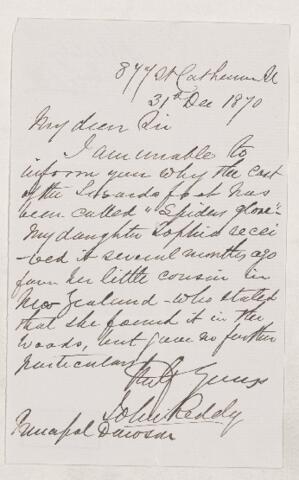 877 St Catherine St
31st Dec 1870
My dear Sir
I am unable to
inform you why the cast
of the Lizards foot has
been called "Spiders glove"
My daughter Sophia recei
-ved it several months ago
from her little cousin in
New Zealand - who stated
that she found it in the
woods, but gave no further
particulars
Yours
John Reddy
Principal Dawson